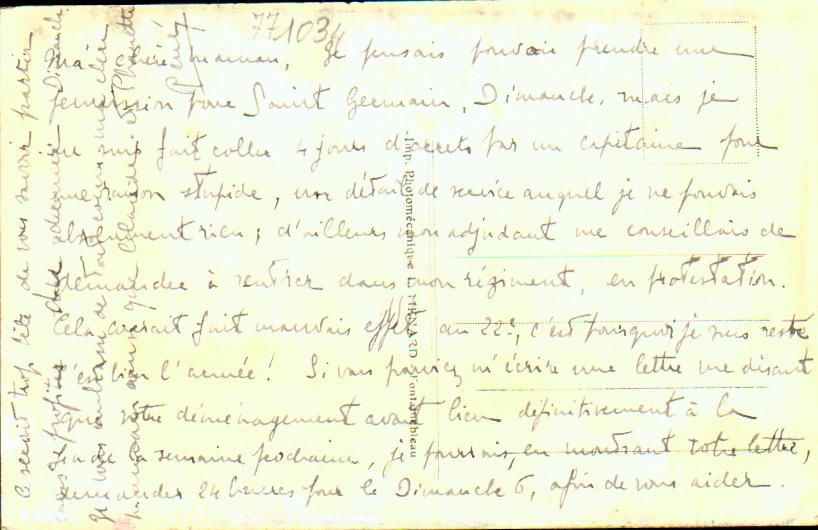 771034
Ma chère maman, Je pensais pouvoir prendre une
permission pour Saint Germain, Dimanche, mais je
me suis fait coller 4 jours d'arrêts par un capitaine pour
une raison stupide, un détail de service auquel je ne pouvais
absolument rien ; d'ailleurs mon adjudant me conseillais de
demander à rentrer dans mon régiment, en protestation.
Cela aurait fait mauvais effet au 22e, c'est pourquoi je suis resté
c'est bien l'armée ! Si vous pouviez m'écrire une lettre me disant
que votre déménagement avait lieu définitivement à la
fin de la semaine prochaine, je pourrais, en montrant votre lettre,
demander 24 heures pour le Dimanche 6, afin de vous aider.
Ce serait trop bête de vous savoir partir
sans profiter Dimanche.
Je vous embrasse de tout coeur, ma chère
maman, ainsi que
Rémy
Imp. Photomécanique L. MÉNARD, Fontainebleau